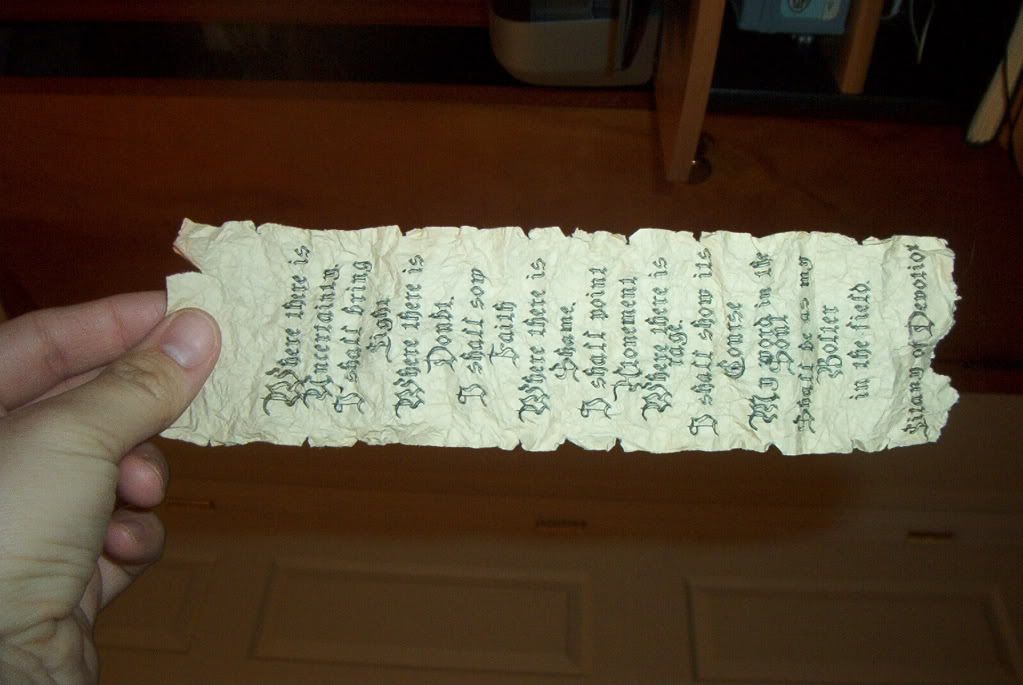 Where there is
Uncertainty.
I shall bring
light
Where there is
Doubt.
I shall sow
faith
Where there is
Shame.
I shall point
Atonement
Where there is
rage.
I shall show its
Course
My word in the
Soul
Shall be as my
Bolter
in the field.
Litany of Devotion